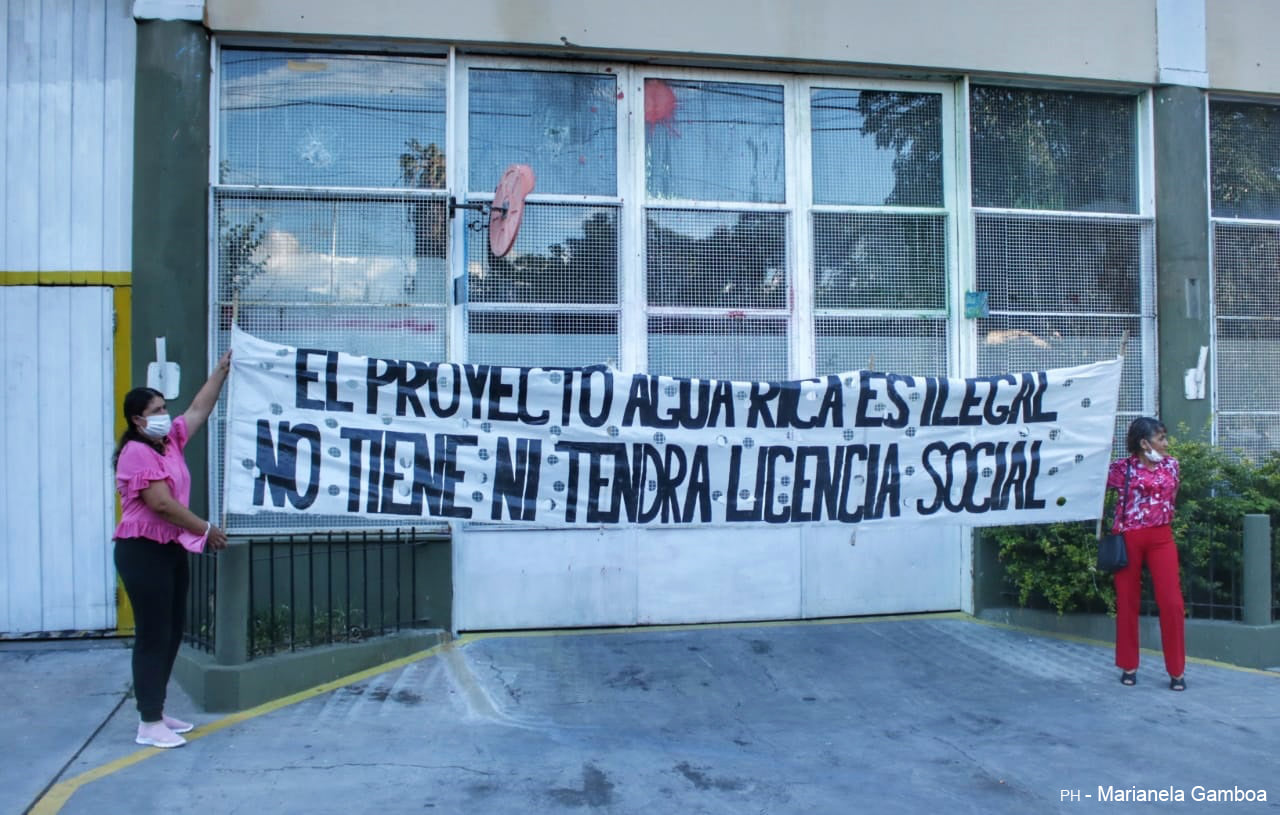 EL PROYECTO AGUA RICA ES ILEGAL
NO TIENE NI TENDRA LICENCIA SOCIAL
PH - Marianela Gamboa